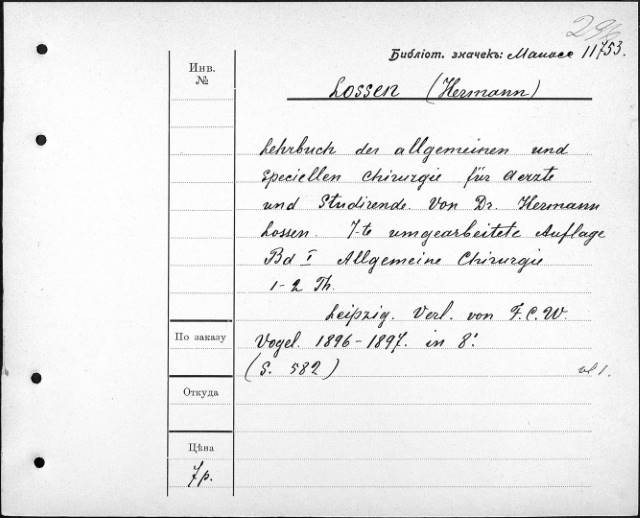 Библіот. значекъ: Манасе 11753.
Инв. №
Lossen (Hermann)
Lehrbuch der allgemeinen und
speciellen Chirurgie für Aerzte
und Studirende. Von Dr. Hermann
Lossen. 7-te umgearbeitete Auflage
Bd I Allgemeine Chirurgie
1-2 Th.
Leipzig. Verl. von F. C. W.
По заказу
Vogel. 1896-1897. in 8°.
(S. 582)
Откуда
Цѣна
7р.